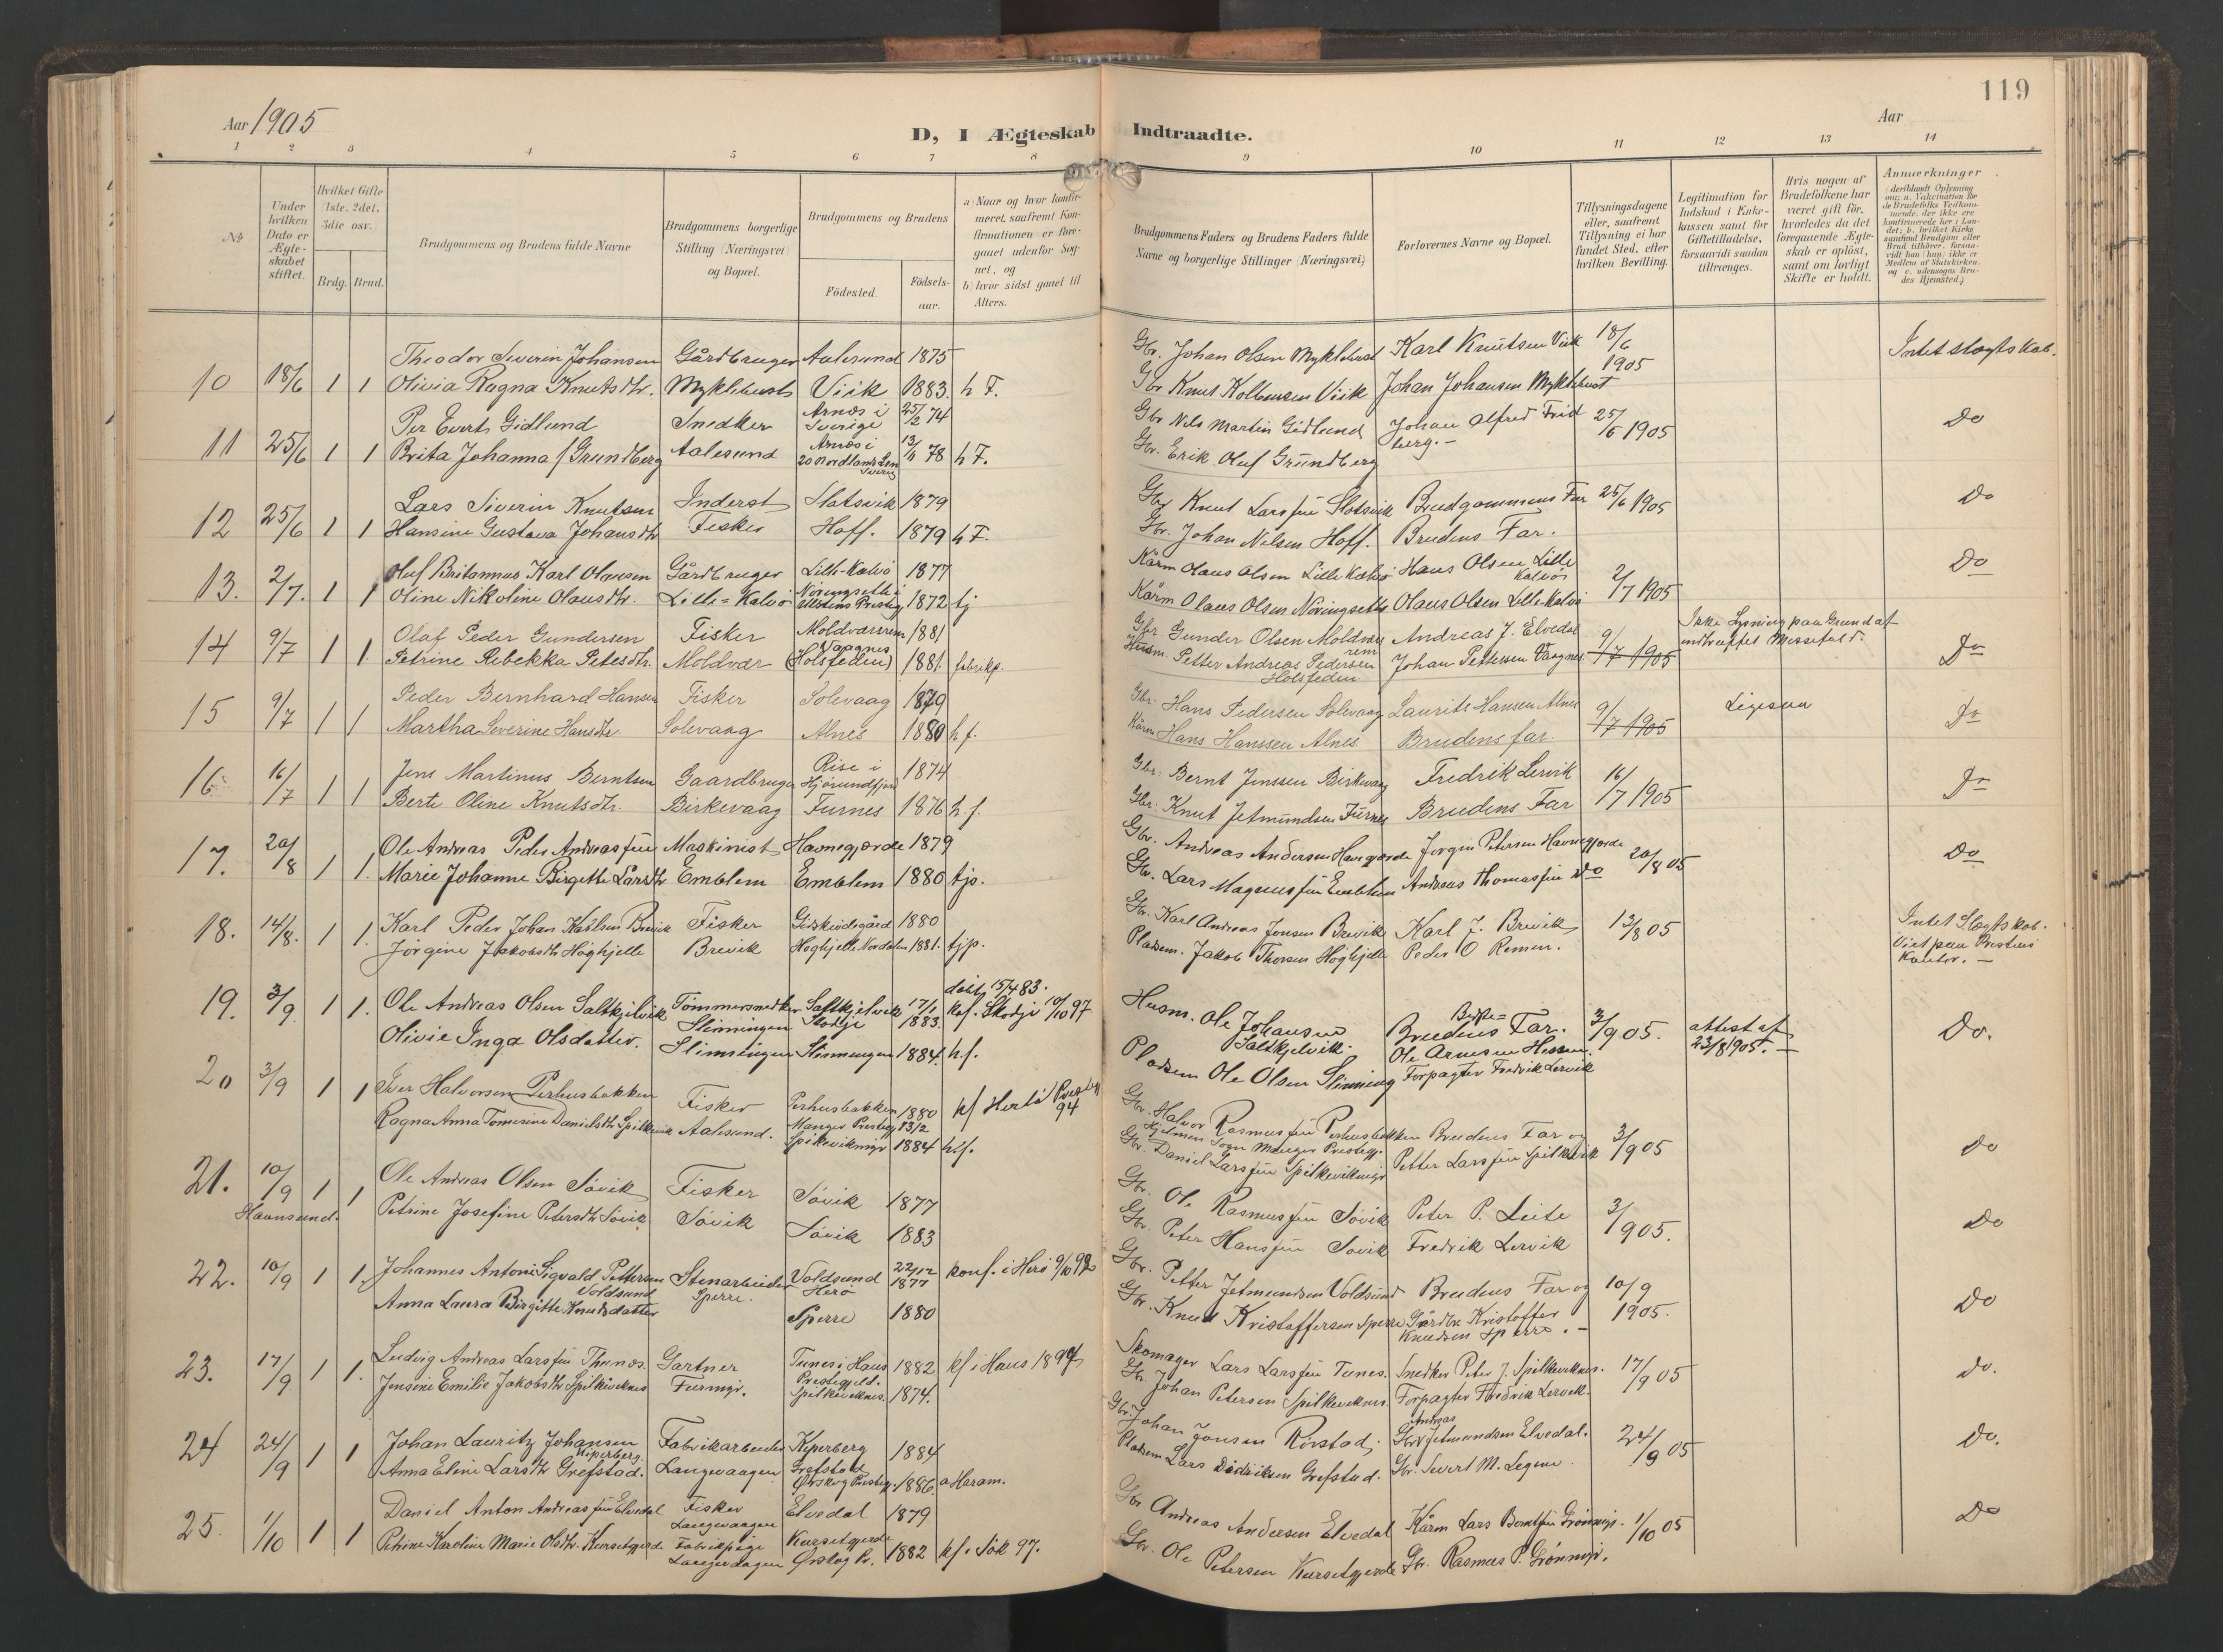 119
Aar 1905
Aar
D, I Ægteskab Indtraadte.
1 2 3 4 5 6 7 8 9 10 11 12 13 14
No
Under hvilken Dato er Ægteskabet stiftet.
Hvilket Gifte (1ste, 2det, 3die osv.
Brdg. Brud.
Brudgommens og Brudens fulde Navne
Brudgommens borgerlige Stilling (Næringsvei) og Bopæl.
Brudgommens og Brudens
Fødested
Fødsels-aar.
a) Naar og hvor konfirmeret, saafremt Konfirmationen er foregaaet udenfor Sognet, og
b) hvor sidst gaaet til Alters.
Brudgommens Faders og Brudens Faders fulde Navne og borgerlige Stillinger (Næringsvei)
Forlovernes Navne og Bopæl.
Tillysningsdagene eller, saafremt Tillysning ei har fundet Sted, efter hvilken Bevilling.
Legitimation for Indskud i Enkekassen samt for Giftetilladelse, forsaavidt saadan tiltrænges.
Hvis nogen af Brudefolkene har været gift før, hvorledes da det foregaaende Ægteskab er opløst, samt om lovligt Skifte er holdt.
Anmærkninger
10 18/6 1 1 Theodor Severin Johansen Gårdbruger Aalesund 1875
Olivia Ragna Knutsdtr. Myklebust Viik 1883. h F.
Gbr. Johan Olsen Myklebust Karl Knutsen Viik 18/6 1905 Intet slægtskab.
Gbr Knut Kolbensen Viik Johan Johansen Myklebust
11 25/6 1 1 Per Evert Gidlund Snedker Arnäs i Sverige 25/2 74
Brita Johanna Grundberg Aalesund Arnäs i Sverig 13/11 78 h F.
Gbr Nils Martin Gidlund Johan Alfred Fridberg. 25/6 1905 Do
Gbr. Erik Oluf Grundberg
12 25/6 1 1 Lars Siverin Knutsen Inderst Slatsvik 1879
Hansine Gustava Johansdtr Fisker Hoff. 1879 h F.
Gbr Knut Larsen Slotsvik Brudgommens Far 25/6 1905 Do
Gbr. Johan Nilsen Hoff. Brudens Far.
13. 2/7. 1 1 Oluf Britannus Karl Olausen Gårdbruger Lille-Kalvø 1877
Oline Nikoline Olausdtr. Lille=Kalvø Nøringsettli Prestegj 1872 tj
Kårm Olaus Olsen Lille Kalvø Hans Olsen Lille Kalvø 2/7 1905 Do
Kårm Olaus Olsen Nøringsettli Olaus Olsen Lille-Kalvø
14 9/7 1 1. Olaf Peder Gundersen Fisker Moldværsrem 1881
Petrine Rebekka Petersdtr. Moldvær Vaagnes (Holsfeden) 1881. fabrikp.
Gbr. Gunder Olsen Moldværrem Andreas J. Elvedal 9/7 1905 Ikke Lysning paa Grund af indtruffet Messefald. Do
Husm. Petter Andreas Pedersen Holsfeden Johan Pettersen Vaagnes
15 9/7 1 1 Peder Bernhard Hansen Fisker Solevaag 1879
Martha Severine Hansdtr Solevaag Alnes 1880 h f.
Gbr: Hans Pedersen Solevaag Laurits Hansen Alnes 9/7 1905 Ligesaa Do
Kårm Hans Hanssen Alnes. Brudens far.
16 16/7 1 1 Jens Martinus Berntsen Gaardbruger Rise i Hjørundfjord 1874
Berte Oline Knutsdtr. Birkevaag Furnes 1876 h. f.
Gbr: Bernt Jenssen Birkevaag Fredrik Lervik 16/7 1905 Do
Gbr: Knut Jetmundsen Furnes Brudens Far
17. 20/8 1 1. Ole Andreas Peder Andreassen Maskinist Havnegjerde 1879
Marie Johanne Birgitte Larsdtr Emblem Emblem 1880 tjp.
Gbr. Andreas Andersen Havnegjerde Jørgen Petersen Havnegjerde 20/8 05 Do
Gbr. Lars Magnussen Emblem Andreas Thomassen Do
18. 14/8. 1 1. Karl Peder Johan Karlsen Brevik Fisker Giskeødegård 1880
Jørgine Jakobsdtr Høghjelle Brevik Høghjelle Nordalen 1881. tjp.
Gbr. Karl Andreas Jonsen Brevik Karl J. Brevik 13/8 05 Intet Slægtskab. Viet paa Prestens Kontor.
Pladsm. Jakob Thorsen Høghjelle Peder O Remen.
19. 3/9. 1 1. Ole Andreas Olsen Saltkjelvik Tømmersnedker Slinningen Saltkjelvik Skodje 17/1 1883. døbt 15/4 83. kof. Skodje 10/10 97
Olivie Inga Olsdatter. Slinningen Slinningen 1884. h.f.
Husm. Ole Johansen Saltkjelvik. Bedste= Brudens Far. Ole Arnesen Hessen. 3/9 05. attest af 23/8 1905. Do.
Pladsm Ole Olsen Slinning Forpagter Fredrik Lervik
20 3/9 1 1 Iver Halvorsen Perhusbakken Fisker Perhusbakken Manger Prestegj 1880 13/2 kf Herlø Prestegj 94
Ragna Anna Tomesine Danielsdtr Spilkevik Aalesund. Spilkeviknip 1884 h.f.
Gbr. Halvor Rasmussen Perhusbakken Hjelmen Sogn Manger Prestegj. Brudens Far og 3/9 05 Do
Gbr. Daniel Larssen Spilkeviknip Petter Larssen Spilkevik
21. 10/9 1 1 Ole Andreas Olsen Søvik Fisker Søvik 1877
Havnsund. Petrine Josefine Petersdtr Søvik Søvik Søvik 1883
Gbr. Ole Rasmussen Søvik Peter P. Leite 3/9 05. Do
Gbr. Peter Hanssen Søvik Fredrik Lervik
22. 10/9 1 1. Johannes Antoni Sigvald Pettersen Voldsund Stenarbeider Sperre. Voldsund Herø 22/12 1877 konf. i Herø 9/10 92
Anna Laura Birgitte Knudsdatter Sperre 1880
Gbr. Petter Jetmundsen Voldsund Brudens Far og 10/9 1905. Do
Gbr. Knut Kristoffersen Sperre Gårdbr. Kristoffer Knudsen Sperre.
23. 17/9 1 1. Ludvig Andreas Larssen Thunes. Gartner Tunes i Haus Prestegjeld. 1882 kf i Haus 1897
Jensine Emilie Jakobsdtr Spilkeviknes Furmyr. Spilkeviknes. 1874.
Skomager Lars Larssen Tunes. Snedker Peter J. Spilkeviknes. 17/9 05 do.
Gbr. Johan Petersen Spilkeviknes. Forpagter Fredrik Lervik.
24 24/9 1 1 Johan Lauritz Johansen Kiperberg Fabrikarbeider Kiperberg 1884
Anna Eline Larsdtr Grefstad. Langevaagen Grefstad Ørskog Prestegj. 1886. a Haram.
Gbr. Johan Jonsen Rørstad. Gbr Andreas Jetmundsen Elvedal. 24/9 05 Do.
Pladsm Lars Didriksen Grefstad. Gbr. Sivert M. Legene.
25. 1/10 1 1 Daniel Anton Andreassen Elvedal Fisker Langevaagen Elvedal 1879
Petrine Karoline Marie Olsdtr. Kursetgjerde Fabrikpige Langevaagen Kursetgjerde Ørskog Pr. 1882 kf. Søk 97.
Gbr Andreas Andersen Elvedal Kårm Lars Berntsen Grønmyr. 1/10 05 Do
Gbr. Ole Petersen Kursetgjerde Gbr. Rasmus P. Grønmyr.